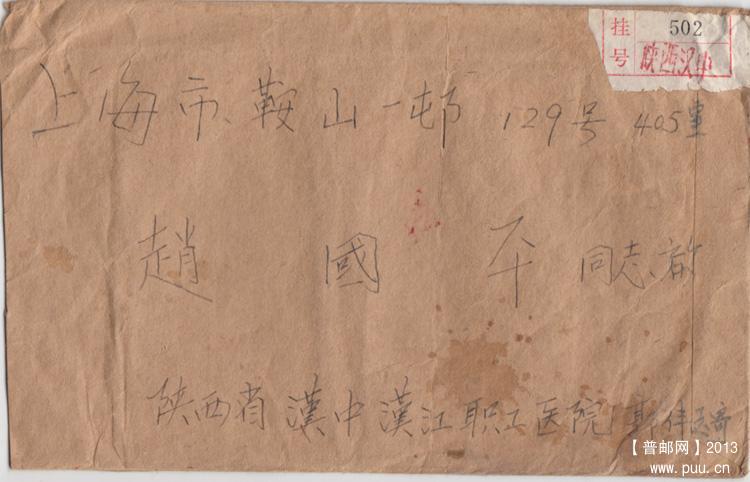 挂号 502
陕西汉中
上海市鞍山一邨 129号 405室
趙國平 同志啟
陕西省漢中漢江职工医院
【普邮网】2013
www.puu.cn